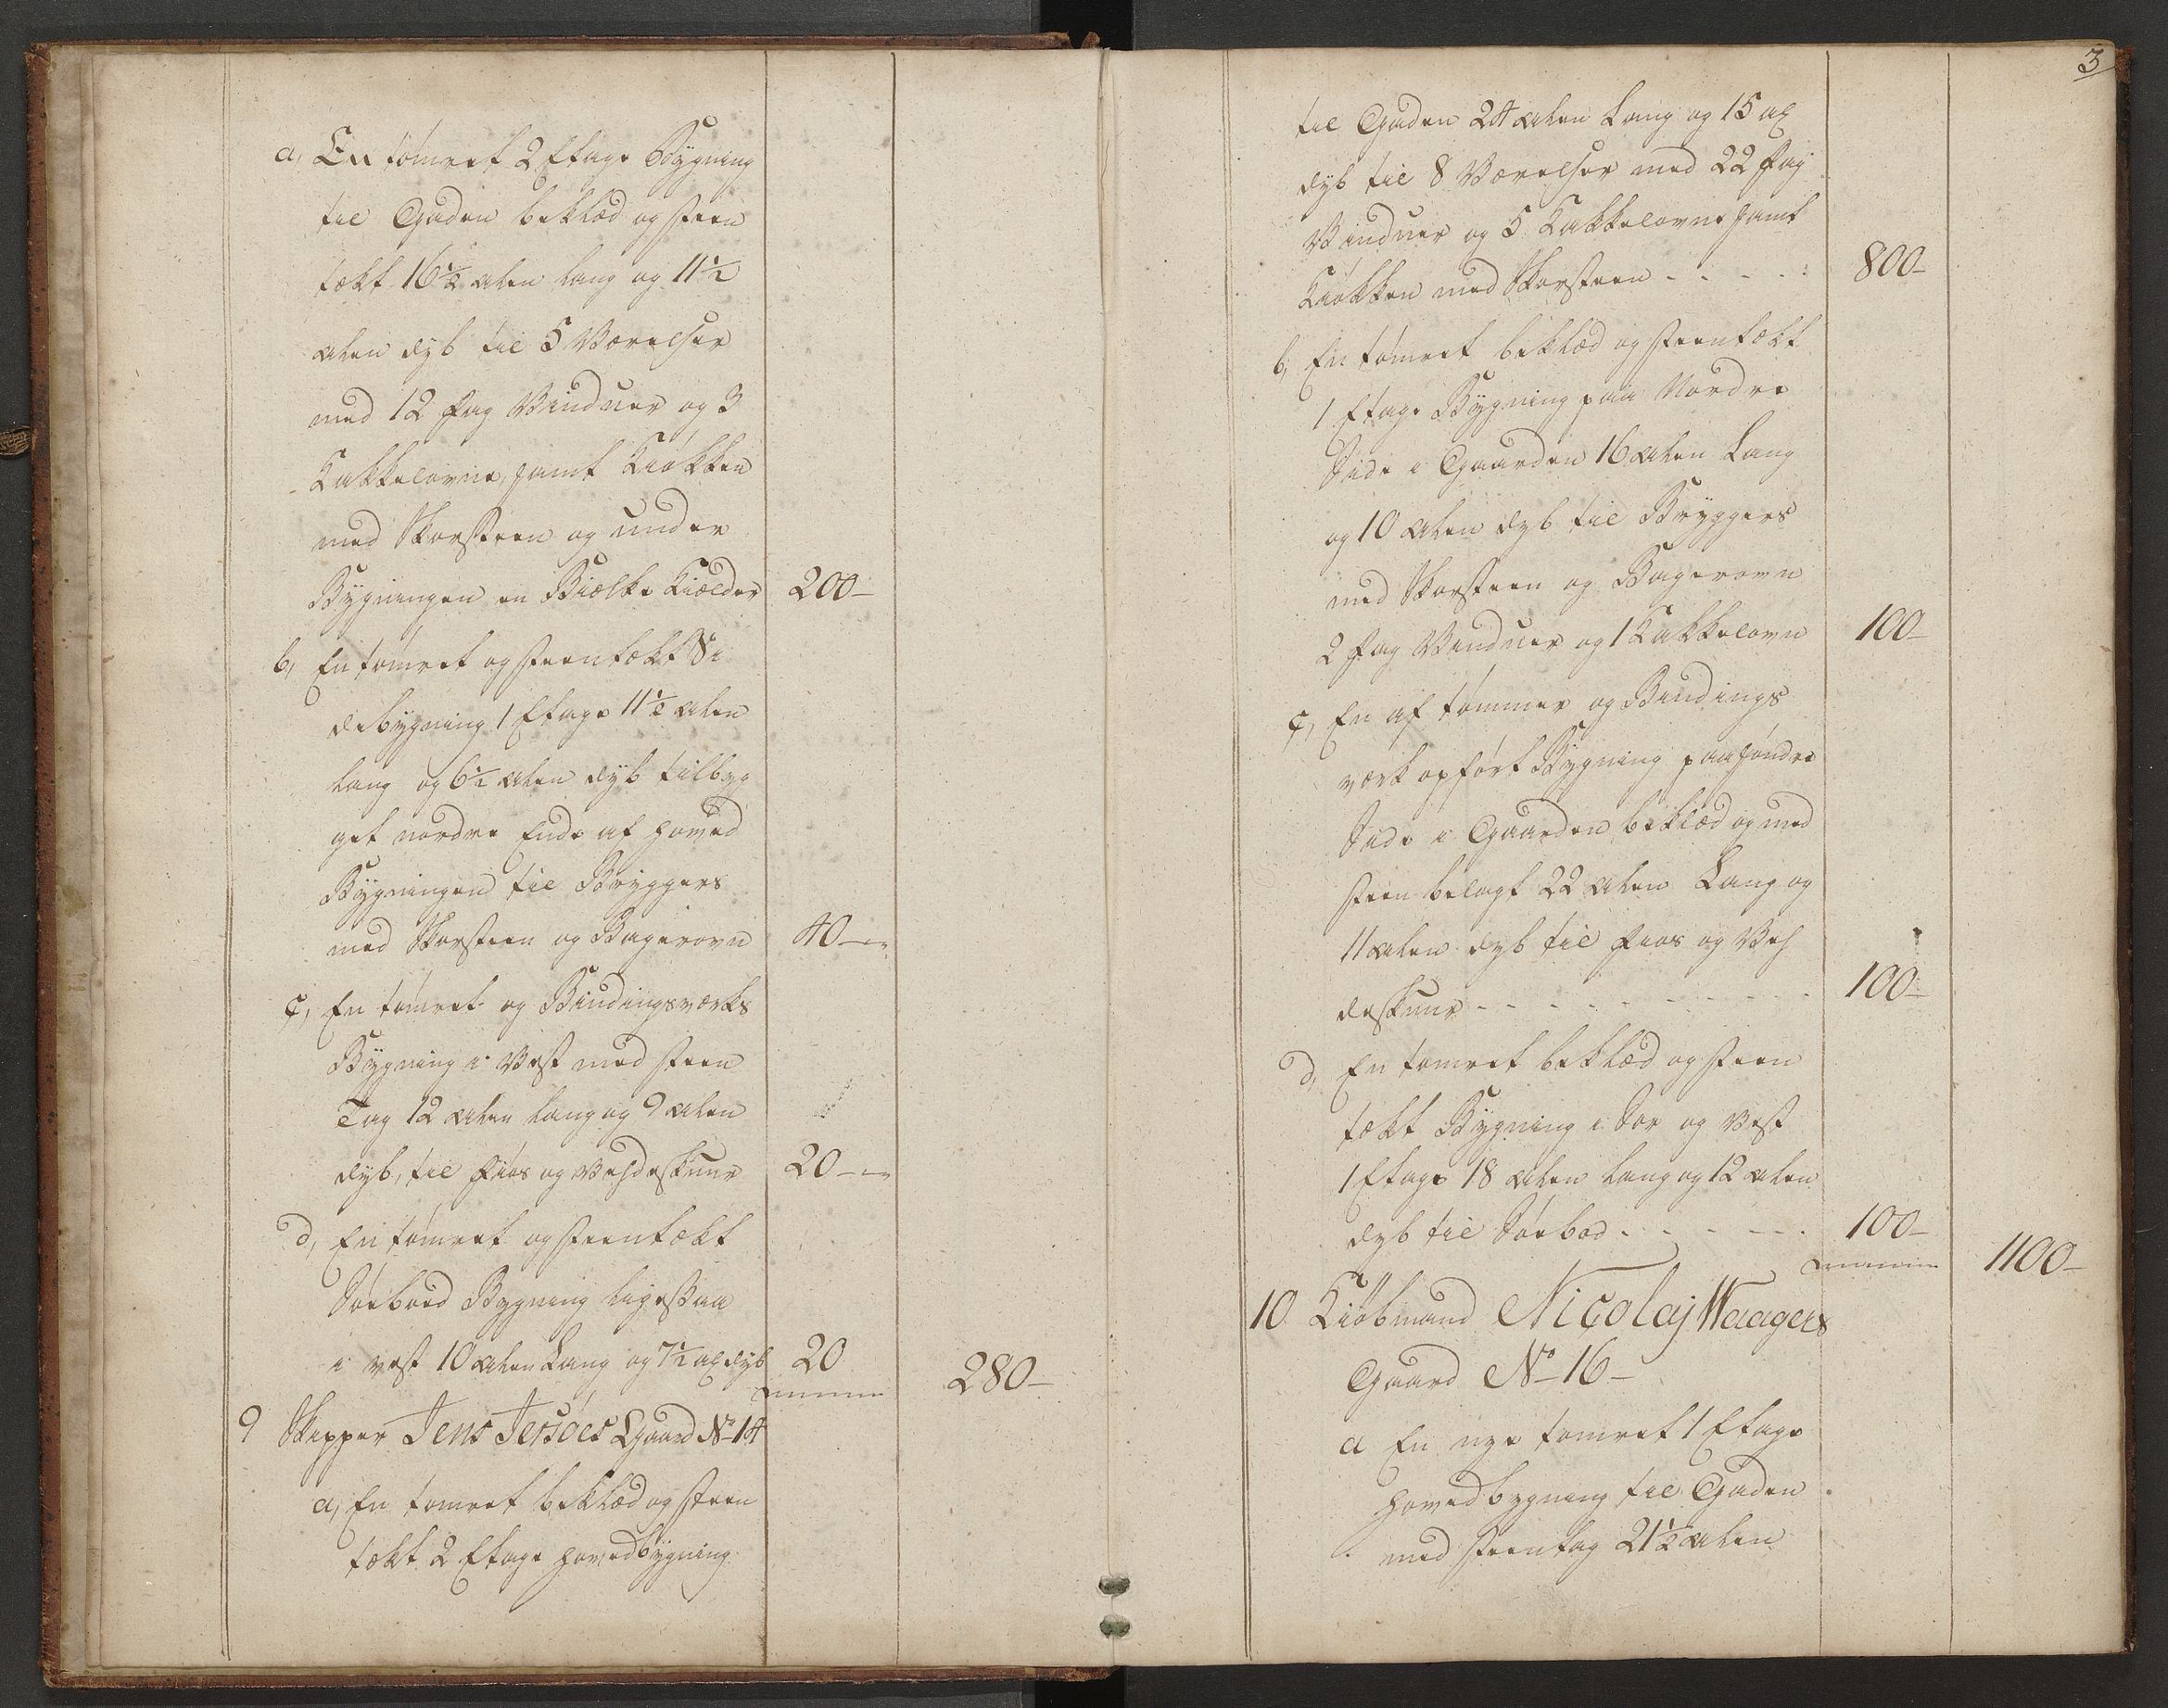 a, En tømret 2 Etage Bygning
til Gaden beklæd og steen
tækt 16½ alen lang og 11½
alen dyb til 5 Værelser
med 12 fag Vinduer og 3
Kakkelovne, samt Kiøkken
med Skorsteen og under
Bygningen en Bielke Kielder 200-
b, En tømret og steentækt Si
debygning 1 Etage 11½ alen
lang og 6½ alen dyb tilbyg
get nordre Ende af hoved
Bygningen til Bryggers
med Skorsteen og Bagerovn 40-
c, En tømret og Bindingsværks
Bygning i Vest med steen
Tag 12 alen lang og 9 alen
dyb, til Fiøs og Vedeskuur 20-
d, En tømret og steentækt
Søeboed Bygning ligesaa
i vest 10 alen Lang og 7½ al dyb 20
280-
9 Skipper Jens Jersøes Gaard No 14
a, En tømret beklæd og steen
tækt 2 Etage hovedbygning
3
til Gaden 24 alen Lang og 15 al
dyb til 8 Værelser med 22 fag
Vinduer og 5 Kakkelovne samt
Kiøkken med Skorsteen - - - - 800-
b, En tømret beklæd og steentækt
1 Etage Bygning paa Nordre
Side i Gaarden 16 alen Lang
og 10 alen dyb til Bryggers
med Skorsteen og Bagerovn
2 fag Vinduer og 1 Kakkelovn 100-
c, En af tømmer og Bindings
værk opført Bygning paa søndre
Side i Gaarden beklæd og med
steen belagt 22 alen Lang og
11 alen dyb til Fiøs og Ve
deskuur - - - - - - - - 100-
d, En tømret beklæd og steen
tækt Bygning i Søe og Vest
1 Etage 18 alen lang og 12 alen
dyb til Søebod - - - - - 100-
1100-
10 Kiøbmand Nicolaj Waagers
Gaard No 16-
a En nye tømret 1 Etage
hovedbygning til Gaden
med steentag 21½ alen